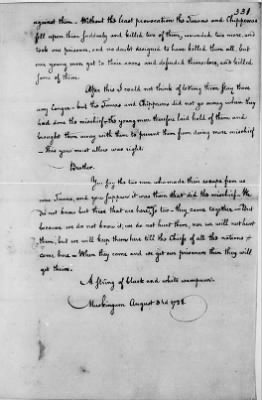 331
against them. Without the least provocation the Tawas and Chippewas
fell upon them suddenly and killed two of them, wounded two more, and
took one prisoner, and no doubt designed to have killed them all, but
our young men got to their arms and defended themselves, and killed
some of them.
After this I could not think of letting them stay here
any longer - but the Tawas and Chippewas did not go away when they
had done the mischief - the young men therefore laid hold of them and
brought them away with them to prevent them from doing more mischief
- This you must allow was right.
Brother.
You say the two men who made their escape from us
was Tawas, and you suppose it was them that did the mischief. We
do not know but these that we have, is two - they came together - But
because we do not know it, we do not hurt them, nor we will not hurt
them, but we will keep them here till the Chiefs of all the nations
come here - When they come and we get our prisoners then they will
get them.
A String of black and white wampum.
Muskingum August 3rd 1788